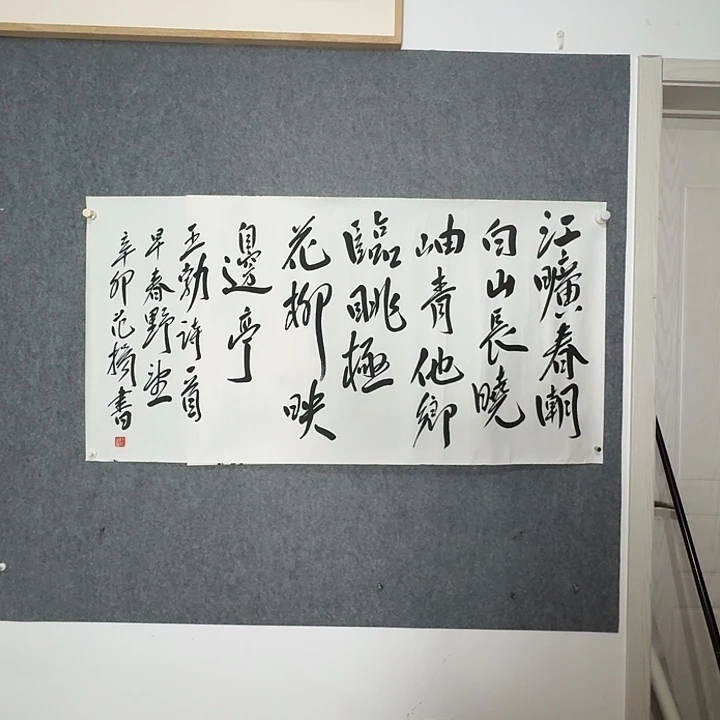 江曠春潮
白山長曉
岫青他鄉
臨眺極
花柳映
邊亭
王勃詩一首
早春野望
辛卯范書